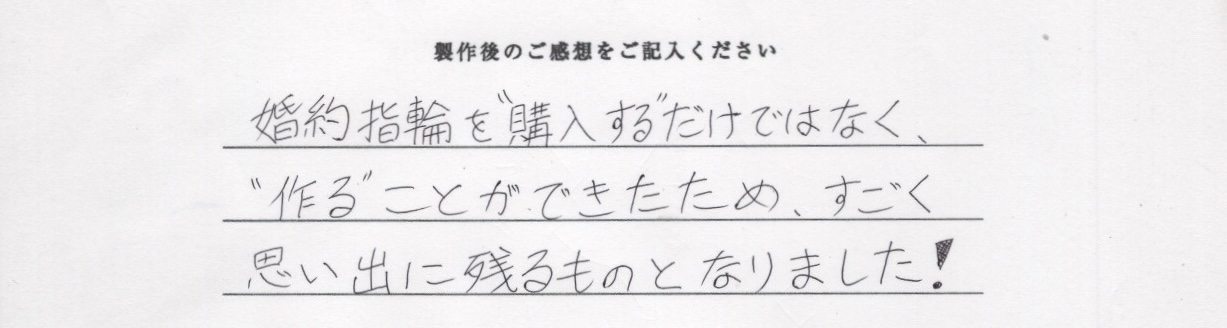 製作後のご感想をご記入ください
婚約指輪を“購入する”だけではなく、
“作る”ことができたため、すごく
思い出に残るものとなりました!